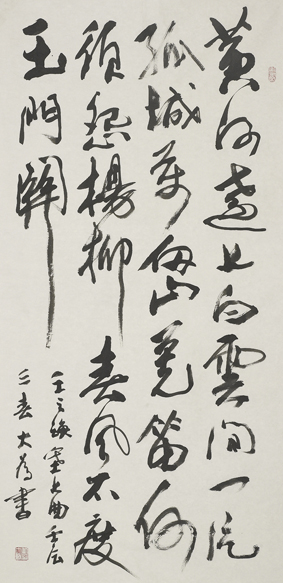 黄河遠上白雲間一片
孤城萬仞山羌笛何
須怨楊柳春風不度
玉門關
王之渙塞上曲壬辰
三春大為書